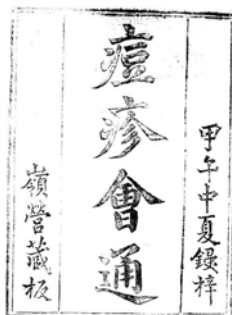 甲午中夏錄梓
痘疹會通
嶺營藏板